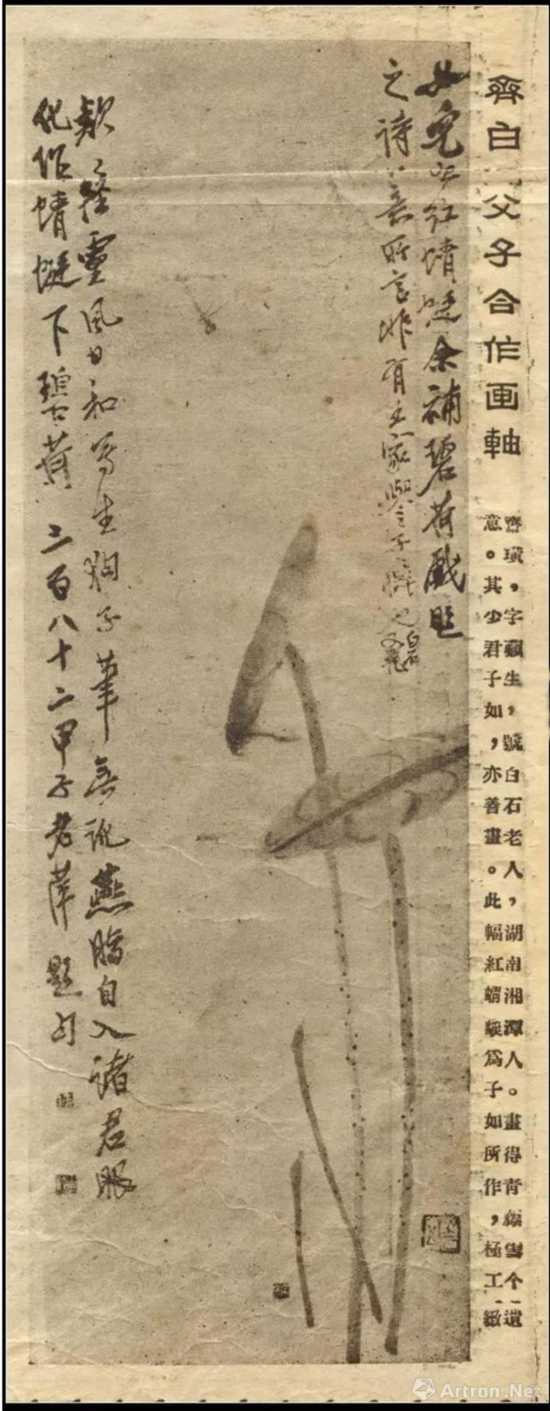 齊白 父子合作画軸
齊璜,字瀕生,號白石老人,湖南湘潭人。畫得青籐雪个遺
意。其少君子如,亦善畫。此幅紅蜻蜓為子如所作,極工緻
如兒画紅蜻蜓余補碧荷戲題
之詩 所言非有 家譽子癖也 白石又記
欵〻輕靈風日和寫生 子筆無訛燕脂自入諸君眼
化作蜻蜓下碧荷 二百八十二甲子老萍題句
Artron.Net